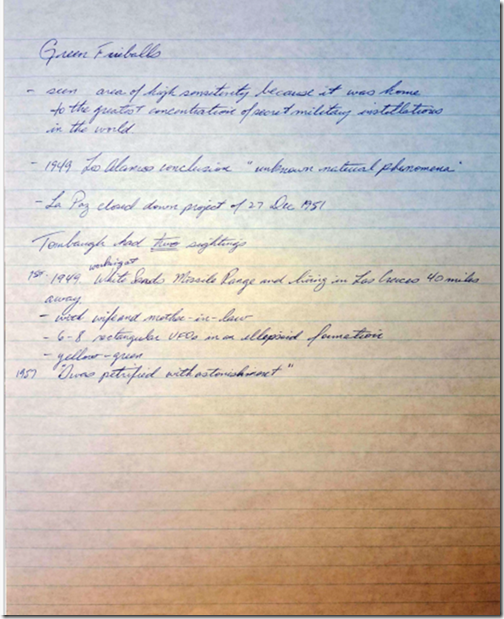 Green Fireballs
- seen area of high sensitivity because it was home
to the greatest concentration of secret military installations
in the world
- 1949 Los Alamos conclusion "unknown natural phenomena"
- La Paz closed down project of 27 Dec 1951
Tombaugh had two sightings
working at
1st - 1949 White Sands Missile Range and living in Las Cruces 40 miles
away
- wife and mother-in-law
- 6-8 rectangular UFOs in an ellipsoid formation
- yellow-green
1957 "I was petrified with astonishment"